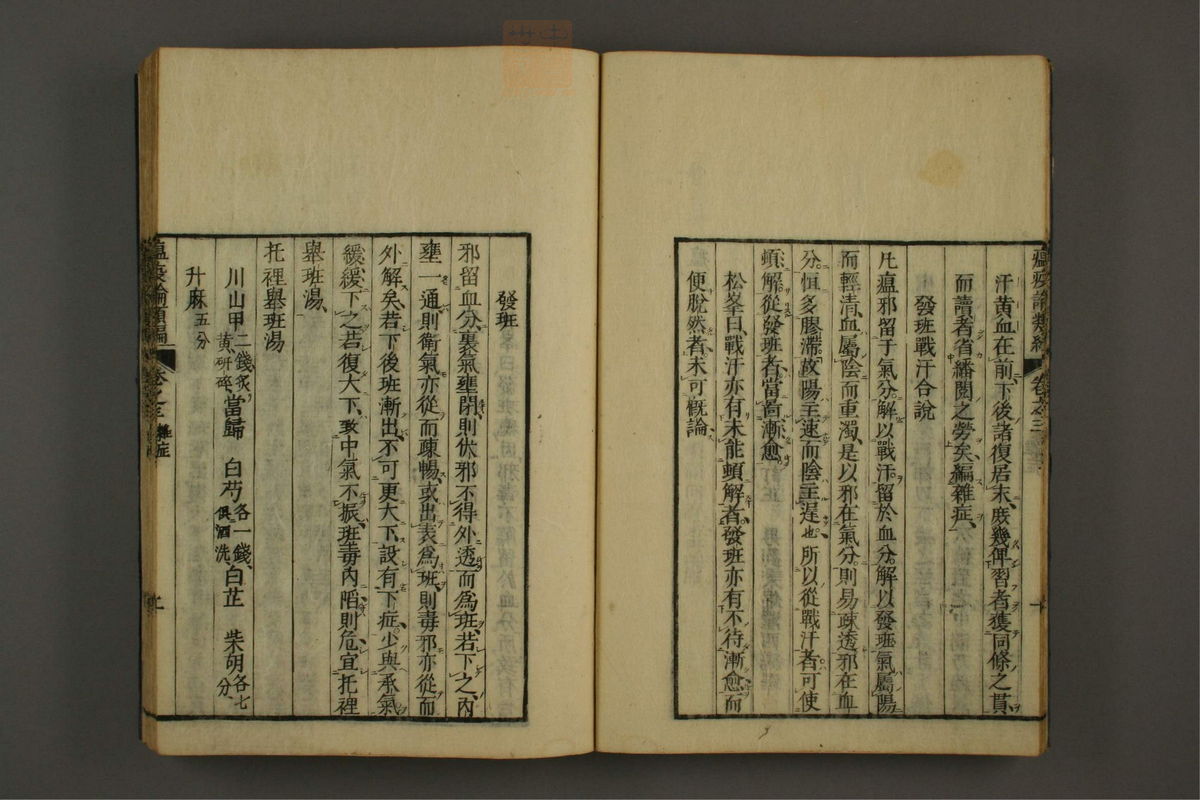 瘟疫論類編 卷之三
汗黃血在前下後諸復居末庻幾俾習者獲同條之貫
而讀者省繙閱之勞矣編雜症
發班戰汗合說
凡瘟邪留于氣分解以戰汗留於血分解以發班氣屬陽
而輕清血屬陰而重濁是以邪在氣分則易疎透邪在血
分恒多膠滯故陽主速而陰主遲也所以從戰汗者可使
頓解從發班者當啚漸愈
松峯曰戰汗亦有未能頓解者發班亦有不待漸愈而
便脫然者未可概論
發班
邪留血分裹氣壅閉則伏邪不得外透而為班若下之內
壅一通則衛氣亦從而疎暢或出表為班則毒邪亦從而
外解矣若下後班漸出不可更大下設有下症少與承氣
緩緩下之若復大下致中氣不振班毒內陷則危宜托裡
舉班湯
托裡舉班湯
川山甲二錢炙黃研碎當歸 白芍各一錢俱酒洗白芷 柴胡各七分
升麻五分
瘟疫論類編 卷之三 雜症